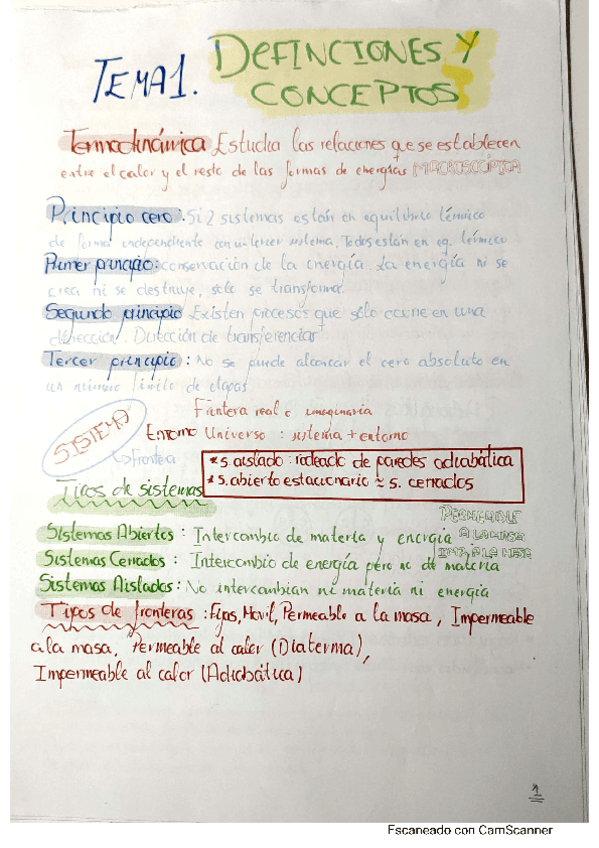 TEMA 1. DEFINCIONES Y
CONCEPTOS
Termodinámica Estudia las relaciones que se establecen
entre el calor y el resto de las formas de energías MACROSCÓPICA
Principio cero: Si 2 sistemas están en equilibrio térmico
de forma independiente con un tercer sistema, Todos están en eq. térmico
Primer principio: conservación de la energía. La energía ni se
crea ni se destruye, solo se transforma
Segundo principio Existen procesos que sólo ocurre en una
dirección. Dirección de transferencia
Tercer principio: No se puede alcanzar el cero absoluto en
un número finito de etapas
Frontera real o imaginaria
SISTEMA Entorno Universo: sistema + entorno
Frontera
* s. aislado: rodeado de paredes adiabática
* s. abierto estacionario ≃ s. cerrados
Tipos de sistemas
PERMEABLE
Sistemas Abiertos: Intercambio de materia y energía A LA MASA
Sistemas Cerrados: Intercambio de energía pero no de materia IMP. A LA MASA
Sistemas Aislados: No intercambian ni materia ni energía
Tipos de fronteras: Fijas, Movil, Permeable a la masa, Impermeable
a la masa, Permeable al calor (Diaterma),
Impermeable al calor (Adiabática)
1
Escaneado con CamScanner